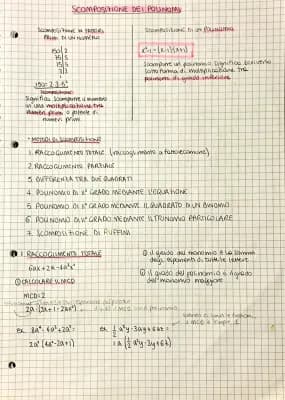 SCOMPOSIZIONE DEI POLINOMI
SCOMPOSIZIONE IN FATTORI
PRIMI DI UN NUMERO
150 | 2
75 | 5
15 | 5
3 | 3
150 = 2·3·5²
Significa scomporre il numero
in una moltiplicazione tra
numeri primi o potenze di
numeri primi.
SCOMPOSIZIONE DI UN POLINOMIO
x²-1 = (x-1)(x+1)
Scomporre un polinomio significa scriverlo
sotto forma di moltiplicazione tra
polinomi di grado inferiore
* METODI DI SCOMPOSIZIONE
1. RACCOGLIMENTO TOTALE (raccoglimento a fattore comune)
2. RACCOGLIMENTO PARZIALE
3. DIFFERENZA TRA DUE QUADRATI
4. POLINOMIO DI 2° GRADO MEDIANTE L'EQUAZIONE
5. POLINOMIO DI 2° GRADO MEDIANTE IL QUADRATO DI UN BINOMIO
6. POLINOMIO DI 2° GRADO MEDIANTE IL TRINOMIO PARTICOLARE
7. SCOMPOSIZIONE DI RUFFINI
1. RACCOGLIMENTO TOTALE
6ax + 2a - 4a²x²
① CALCOLARE IL MCD
MCD = 2
① il grado del monomio è la somma
degli esponenti di tutte le lettere.
② il grado del polinomio è il grado
del monomio maggiore
ES. 8a⁴ - 4a³ + 2a²=
2a² (4a² - 2a + 1)
ES. ½ a²y - 3ay + 6at =
= a (½ a²y - 3y + 6t)